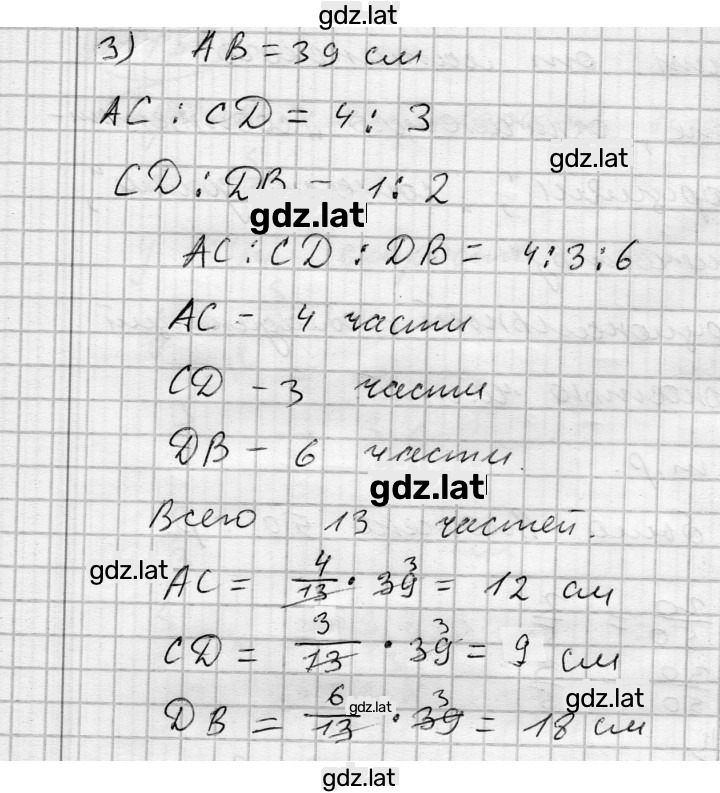 gdz.lat
3) AB = 39 см
AC : CD = 4 : 3
gdz.lat
CD : DB = 1 : 2
gdz.lat
AC : CD : DB = 4 : 3 : 6
AC - 4 части
CD - 3 части
DB - 6 части
gdz.lat
Всего 13 частей.
gdz.lat
AC = 4/13 · 39 3 = 12 см
CD = 3/13 · 39 3 = 9 см
gdz.lat
DB = 6/13 · 39 3 = 18 см
gdz.lat
gdz.lat